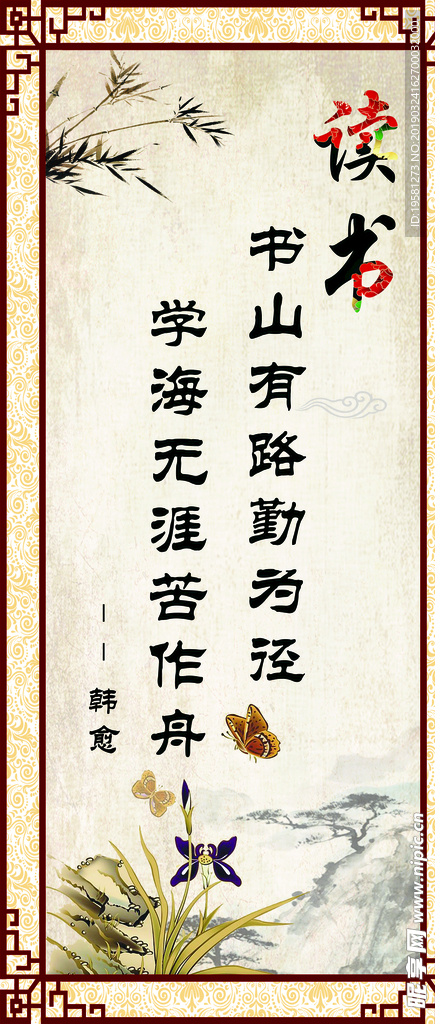 读书
书山有路勤为径
学海无涯苦作舟
——韩愈
ID:19581273 NO:20190324162700032000
昵享网 www.nipic.cn